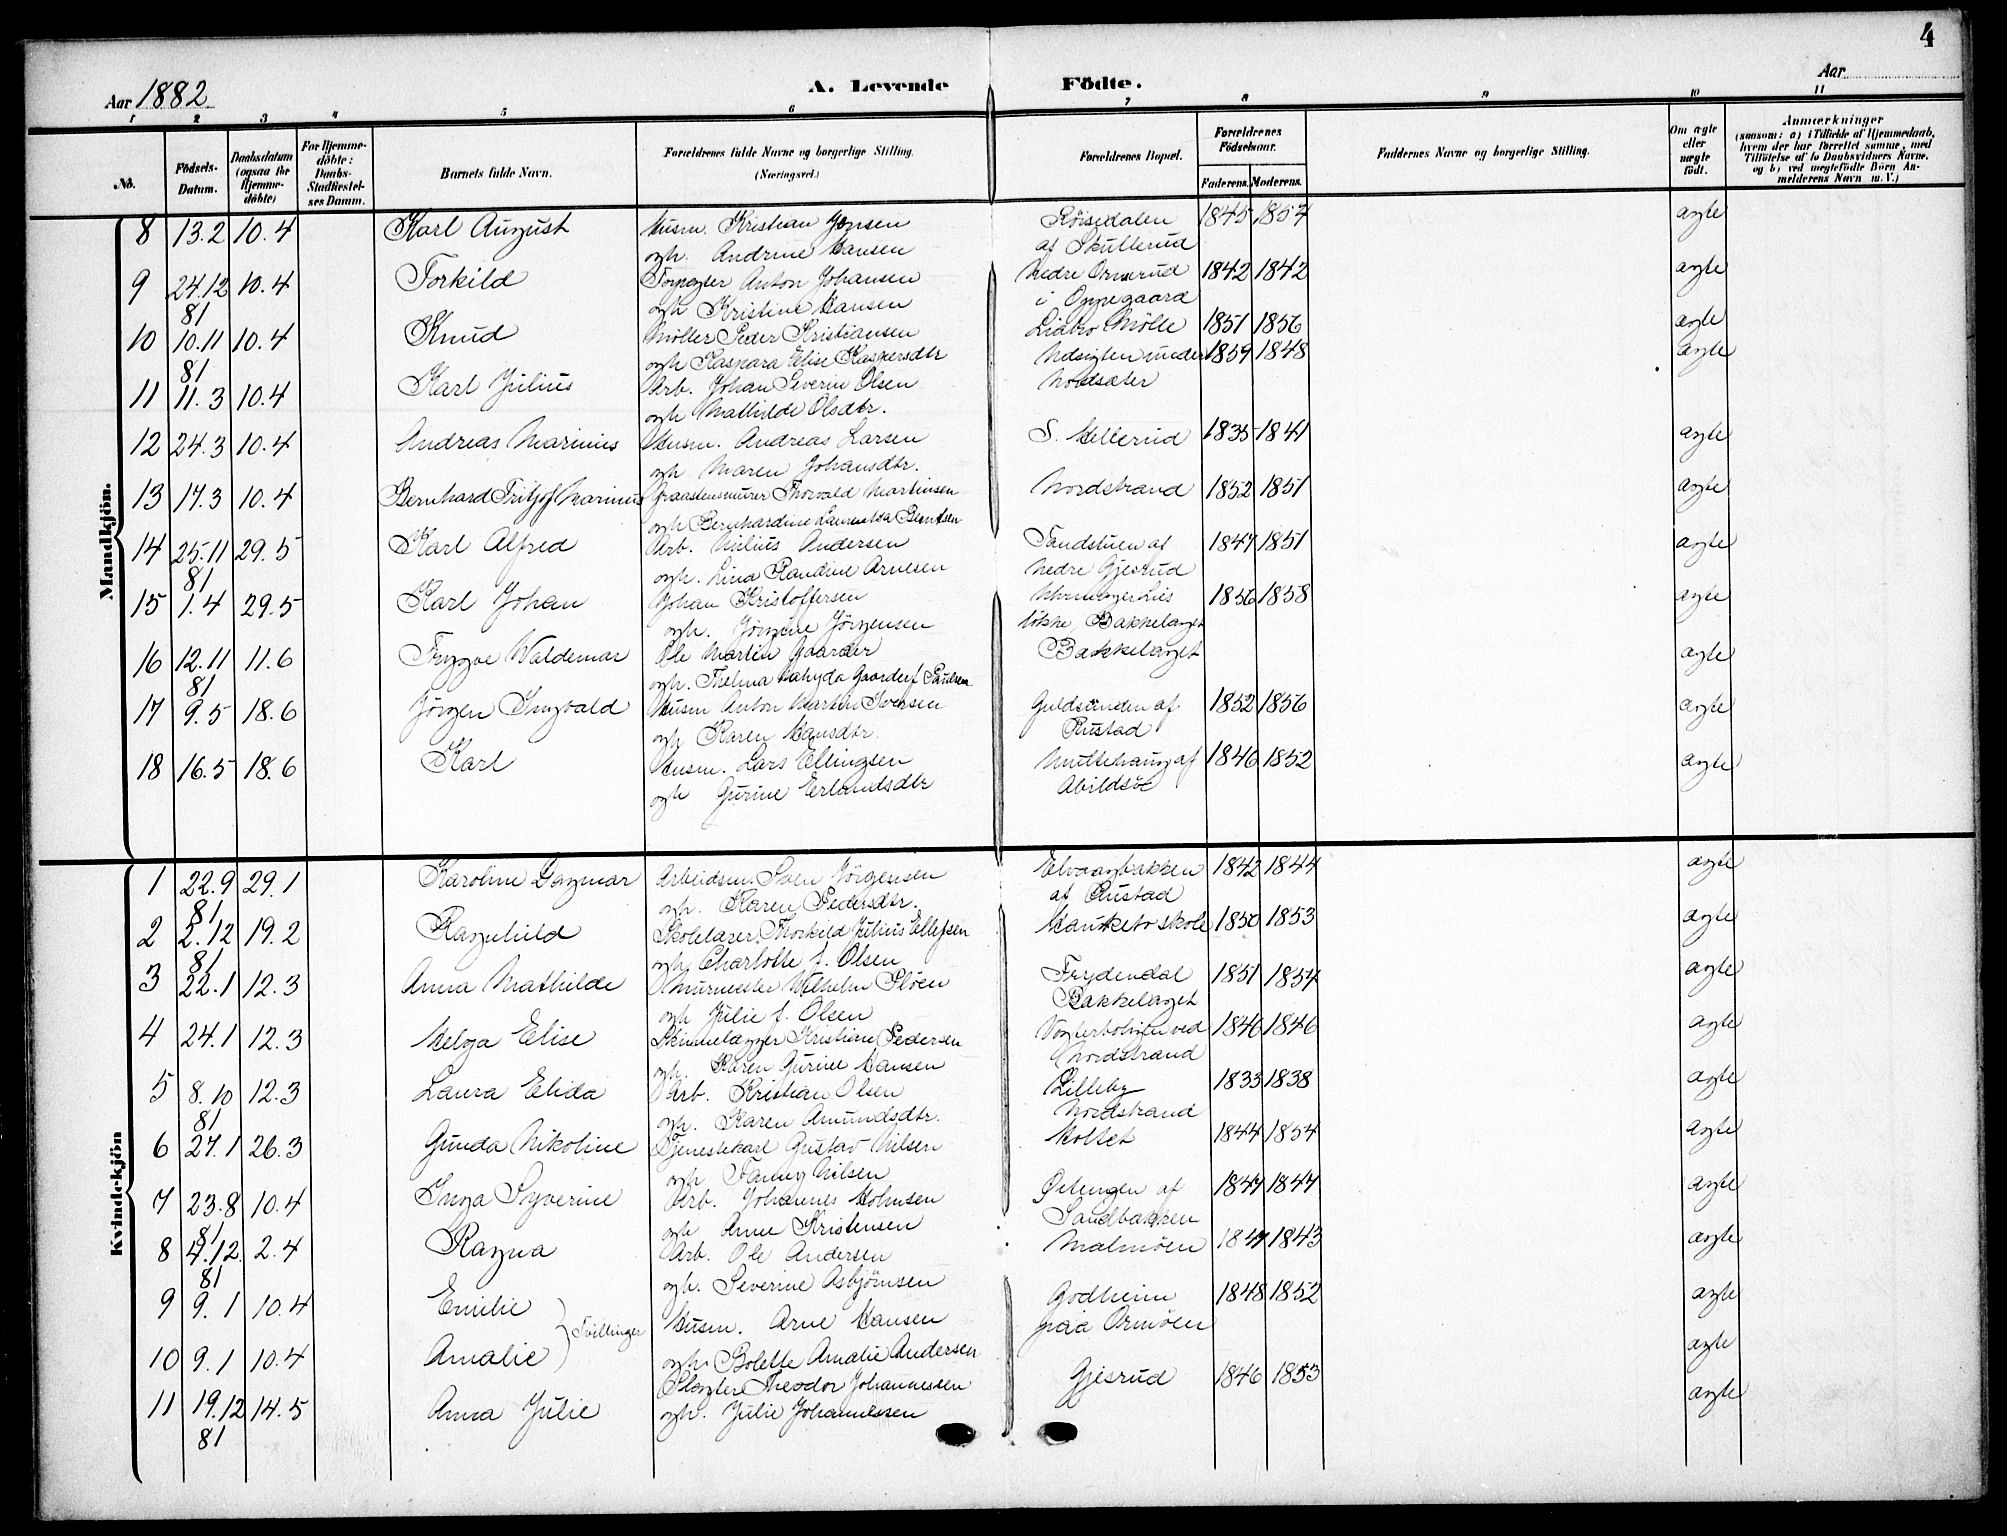 4
Aar 1882
A. Levende Födte.
Aar
1 2 3 4 5 6 7 8 9 10 11
No.
Födsels-Datum.
Daabsdatum (ogsaa for Hjemme-döbte)
For Hjemme-döbte: Daabs-Stadfæstel-ses Datum.
Barnets fulde Navn.
Forældrenes fulde Navne og borgerlige Stilling. (Næringsvei.)
Forældrenes Bopæl.
Forældrenes Födselsaar.
Faderens. Moderens.
Faddernes Navne og borgerlige Stilling.
Om ægte eller uægte födt.
Anmærkninger
(saasom: a) i Tilfælde af Hjemmedaab, hvem der har forrettet samme, med Tilföielse af to Daabsvidners Navne, og b) ved uægtefödte Börn An-melderens Navn m. V.)
Mandkjön.
8 13.2 10.4 Karl August Husm. Kristian Jensen Röisedalen 1845 1854 ægte
og h. Andrine Hansen af Skullerud
9 24.12 10.4 Torkild Forpagter Anton Johansen Nedre Ormerud 1842 1842 ægte
81 og h Kristine Hansen i Oppegaard
10 10.11 10.4 Knud Möller Peder Kristiansen Liabro Mölle 1851 1856 ægte
81 og h Kaspara Elise Kaspersdtr Udsigten under 1859 1848 ægte
11 11.3 10.4 Karl Julius Arb. Johan Severin Olsen Nordsæter
og h Mathilde Olsdtr.
12 24.3 10.4 Andreas Marinius Husm. Andreas Larsen S. Hellerud 1835 1841 ægte
og h Maren Johansdtr.
13 17.3 10.4 Bernhard Fritjof Marinus Graastensmurer Thorvald Martinsen Nordstrand 1852 1851 ægte
og h Bernhardine Laurentza Berntsen
14 25.11 29.5 Karl Alfred Arb. Nilius Andersen Sandstuen af 1847 1851 ægte
81 og h. Lina Randine Arnesen Nedre Gjesrud
15 1.4 29.5 Karl Johan Johan Kristoffersen 1856 1858 ægte
og h. Jörgine Jörgensen lökke Bækkelaget
16 12.11 11.6 Trygve Waldemar Ole Martin Gaarder Bækkelaget ægte
81 og h. Thelma Gaarder f Paulsen
17 9.5 18.6 Jörgen Ingvald Husm Anton Martin Iversen Guldsanden af 1852 1856 ægte
og h Karen Hansdtr. Rustad
18 16.5 18.6 Karl Husm. Lars Ellingsen Multehaug af 1846 1852 ægte
og h Gurine Erlandsdtr Abildsöe
Kvindekjön
1 22.9 29.1 Karoline Dagmar Arbeidsm. Sven Jörgensen Elvaagbakken 1842 1844 ægte
81 og h. Karen Pedersdtr. af Rustad
2 2.12 19.2 Ragnhild Skolelærer Thorkild Julius Ellefsen Hauketo skole 1850 1853 ægte
81 og h. Charlotte f. Olsen
3 22.1 12.3 Anna Mathilde Murmester Wilhelm Plöen Frydendal 1851 1854 ægte
og h Julie f. Olsen Bækkelaget
4 24.1 12.3 Helga Elise Skinnelægger Kristian Pedersen Vogterboligen ved 1846 1846 ægte
og h. Karen Gurine Hansen Nordstrand
5 8.10 12.3 Laura Elida Arb. Kristian Olsen Lilleby 1833 1838 ægte
81 og h. Karen Amundsdtr. Nordstrand
6 27.1 26.3 Gunda Nikoline Tjenestekarl Gustav Nilsen Holtet 1844 1854 ægte
og h Fanny Nilsen
7 23.8 10.4 Inga Syverine Arb. Johannes Holmsen Östengen af 1847 1847 ægte
81 og h Anne Kristensen Sandbakken
8 4.12 2.4 Ragna Arb. Ole Andersen Malmöen 1841 1843 ægte
81 og h. Severine Asbjörnsen
9 9.1 10.4 Emilie Husm. Arne Hansen Godheim 1848 1852 ægte
Tvillinger paa Ormöen
10 9.1 10.4 Amalie og h. Bolette Amalie Andersen ægte
11 19.12 14.5 Anna Julie Slagter Theodor Johannessen Gjesrud 1846 1853 ægte
81 og h. Julie Johannessen